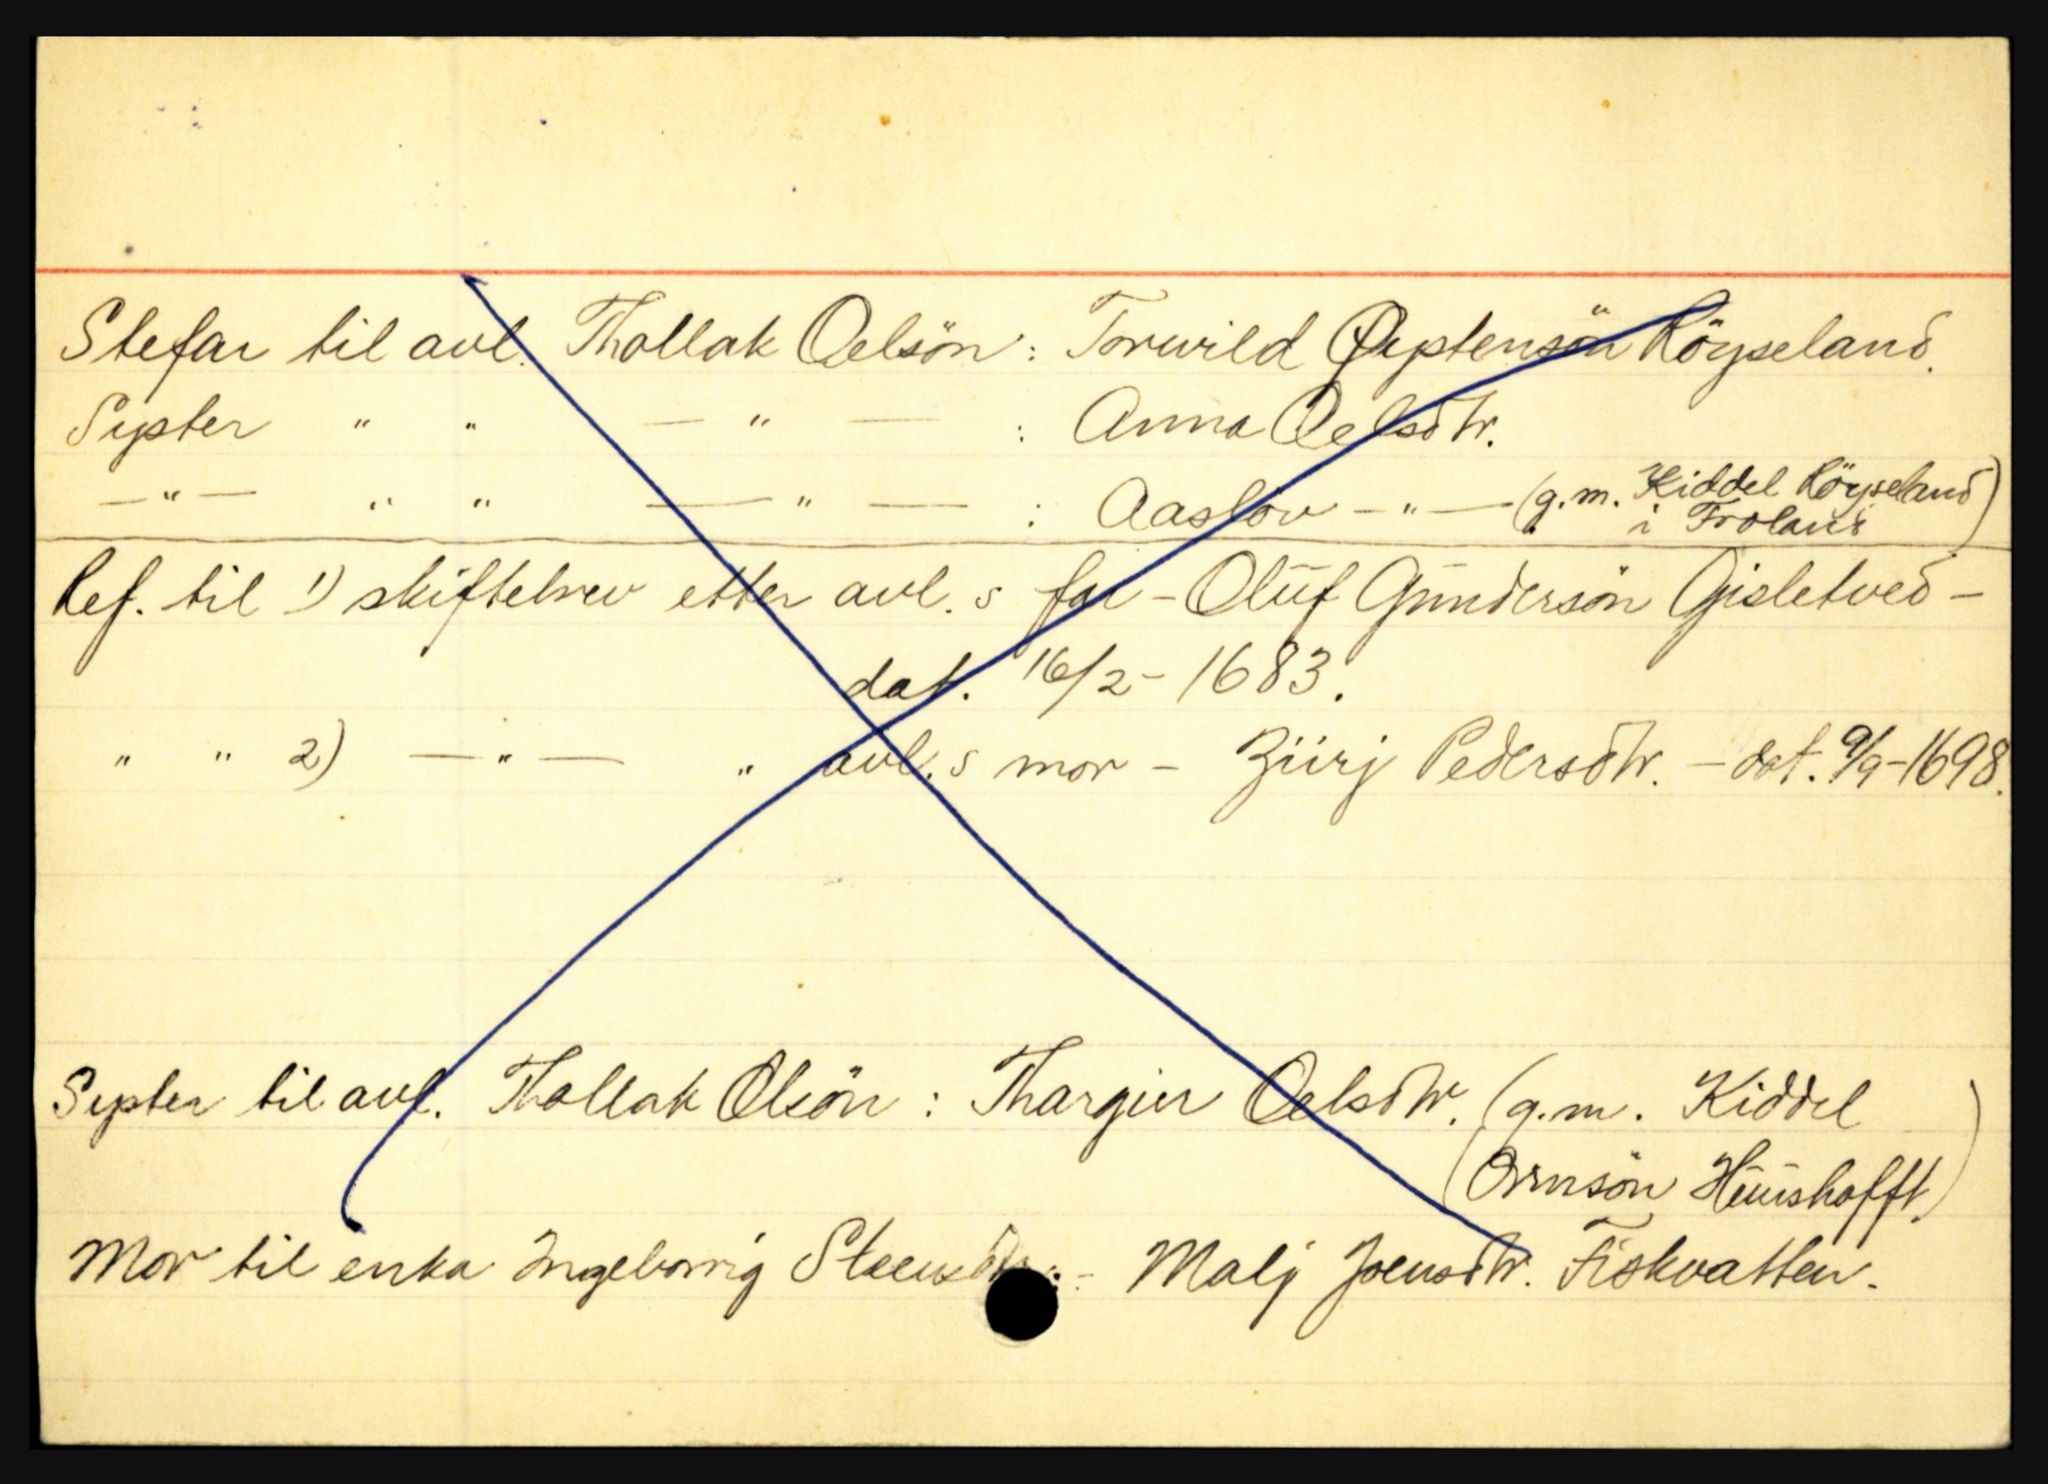 Stefar til avl. Thollak Oelsön : Torwild Øystensön Röyseland.
Syster " " — " — : Anna Oelsdtr.
— " — " " — " — : Aaslöw — " — (g.m. Kiddel Röyseland
i Froland)
Ref. til 1) skiftebrev etter avl.s far - Oluf Gundersön Gisletved -
dat. 16/2 - 1683.
" " 2) — " — " avl.s mor - Ziirj Pedersdtr. - dat. 9/9 - 1698.
Syster til avl. Thollak Olsön : Thargier Oelsdtr. (g.m. Kiddel
Ormsön Huushofft.)
Mor til enka Ingeborrig : - Malj Joensdtr. Fiskvatten.